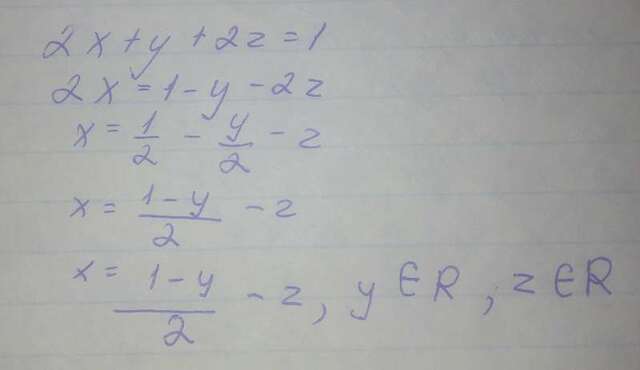 2x+y+2z=1
2x=1-y-2z
x=1/2-y/2-z
x=(1-y)/2-z
x=(1-y)/2-z, y∈R; z∈R